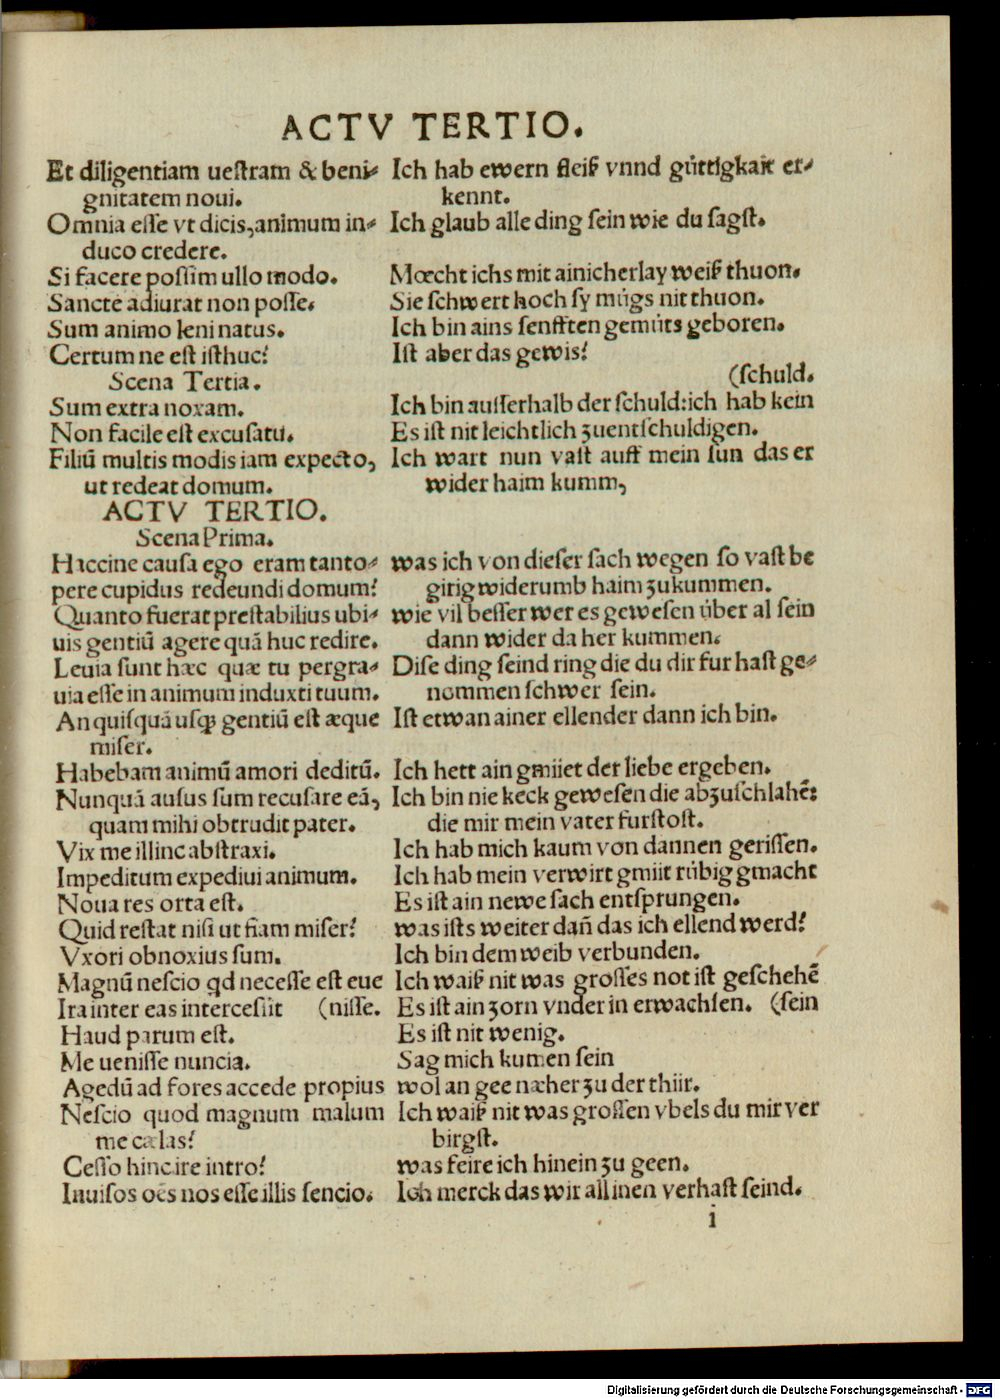 ACTV TERTIO.
Et diligentiam ueſtram & beni⸗ Ich hab ewern fleiß vnnd gůttigkait er⸗
gnitatem noui. kennt.
Omnia eſſe vt dicis,animum in⸗ Ich glaub alle ding ſein wie du ſagſt.
duco credere.
Si facere poſſim ullo modo. Mœcht ichs mit ainicherlay weiß thuon.
Sancte adiurat non poſſe. Sie ſchwert hoch ſy můgs nit thuon.
Sum animo leni natus. Ich bin ains ſenfften gemůts geboren.
Certum ne eſt iſthuc? Iſt aber das gewis?
Scena Tertia. (ſchuld.
Sum extra noxam. Ich bin auſſerhalb der ſchuld:ich hab kein
Non facile eſt excuſatū. Es iſt nit leichtlich zuentſchuldigen.
Filiū multis modis iam expecto, Ich wart nun vaſt auff mein ſun das er
ut redeat domum. wider haim kumm,
ACTV TERTIO.
Scena Prima.
Haccine cauſa ego eram tanto⸗ was ich von dieſer ſach wegen ſo vaſt be
pere cupidus redeundi domum? girig widerumb haim zukummen.
Quanto fuerat preſtabilius ubi⸗ wie vil beſſer wer es geweſen über al ſein
uis gentiū agere quā huc redire. dann wider da her kummen.
Leuia ſunt hæc quæ tu pergra⸗ Diſe ding ſeind ring die du dir fur haſt ge⸗
uia eſſe in animum induxti tuum. nommen ſchwer ſein.
An quiſquā uſqꝫ gentiū eſt æque Iſt etwan ainer ellender dann ich bin.
miſer.
Habebam animū amori deditū. Ich hett ain gmiiet der liebe ergeben.
Nunquā auſus ſum recuſare eā, Ich bin nie keck geweſen die abzuſchlahē:
quam mihi obtrudit pater. die mir mein vater furſtoſt.
Vix me illinc abſtraxi. Ich hab mich kaum von dannen geriſſen.
Impeditum expediui animum. Ich hab mein verwirt gmiit růbig gmacht
Noua res orta eſt. Es iſt ain newe ſach entſprungen.
Quid reſtat niſi ut fiam miſer? was iſts weiter dañ das ich ellend werd?
Vxori obnoxius ſum. Ich bin dem weib verbunden.
Magnū neſcio qd neceſſe eſt eue Ich waiß nit was groſſes not iſt geſchehē
Ira inter eas interceſſit (niſſe. Es iſt ain zorn vnder in erwachſen. (ſein
Haud parum eſt. Es iſt nit wenig.
Me ueniſſe nuncia. Sag mich kumen ſein
Agedū ad fores accede propius wol an gee næher zu der thiir.
Neſcio quod magnum malum Ich waiß nit was groſſen vbels du mir ver
me cælas? birgſt.
Ceſſo hinc ire intro? was feire ich hinein zu geen.
Inuiſos oēs nos eſſe illis ſencio. Ich merck das wir all inen verhaſt ſeind.
i
Digitalisierung gefördert durch die Deutsche Forschungsgemeinschaft - DFG